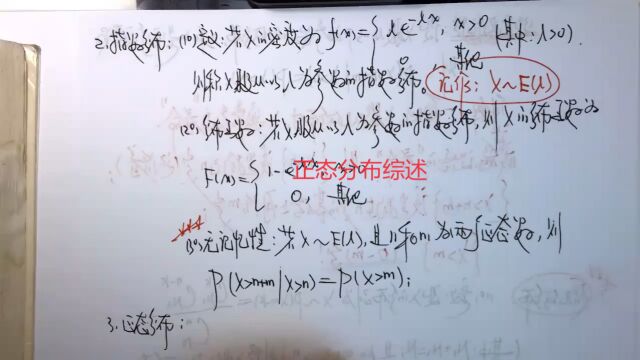 2.指数分布:(1°)定义:若X的密度为 f(x)={ λe^{-λx}, x>0 (其中:λ>0).
0, 其他
则称X服从以λ为参数的指数分布。记作:X~E(λ)
(2°)分布函数:若X服从以λ为参数的指数分布,则X的分布函数为
F(x)={ 1-e^{-λx}, x>0
正态分布综述
0, 其他
(3°)无记忆性:若X~E(λ),且n和m为两个正态数,则
P(X>n+m|X>n)=P(X>m);
3.正态分布: